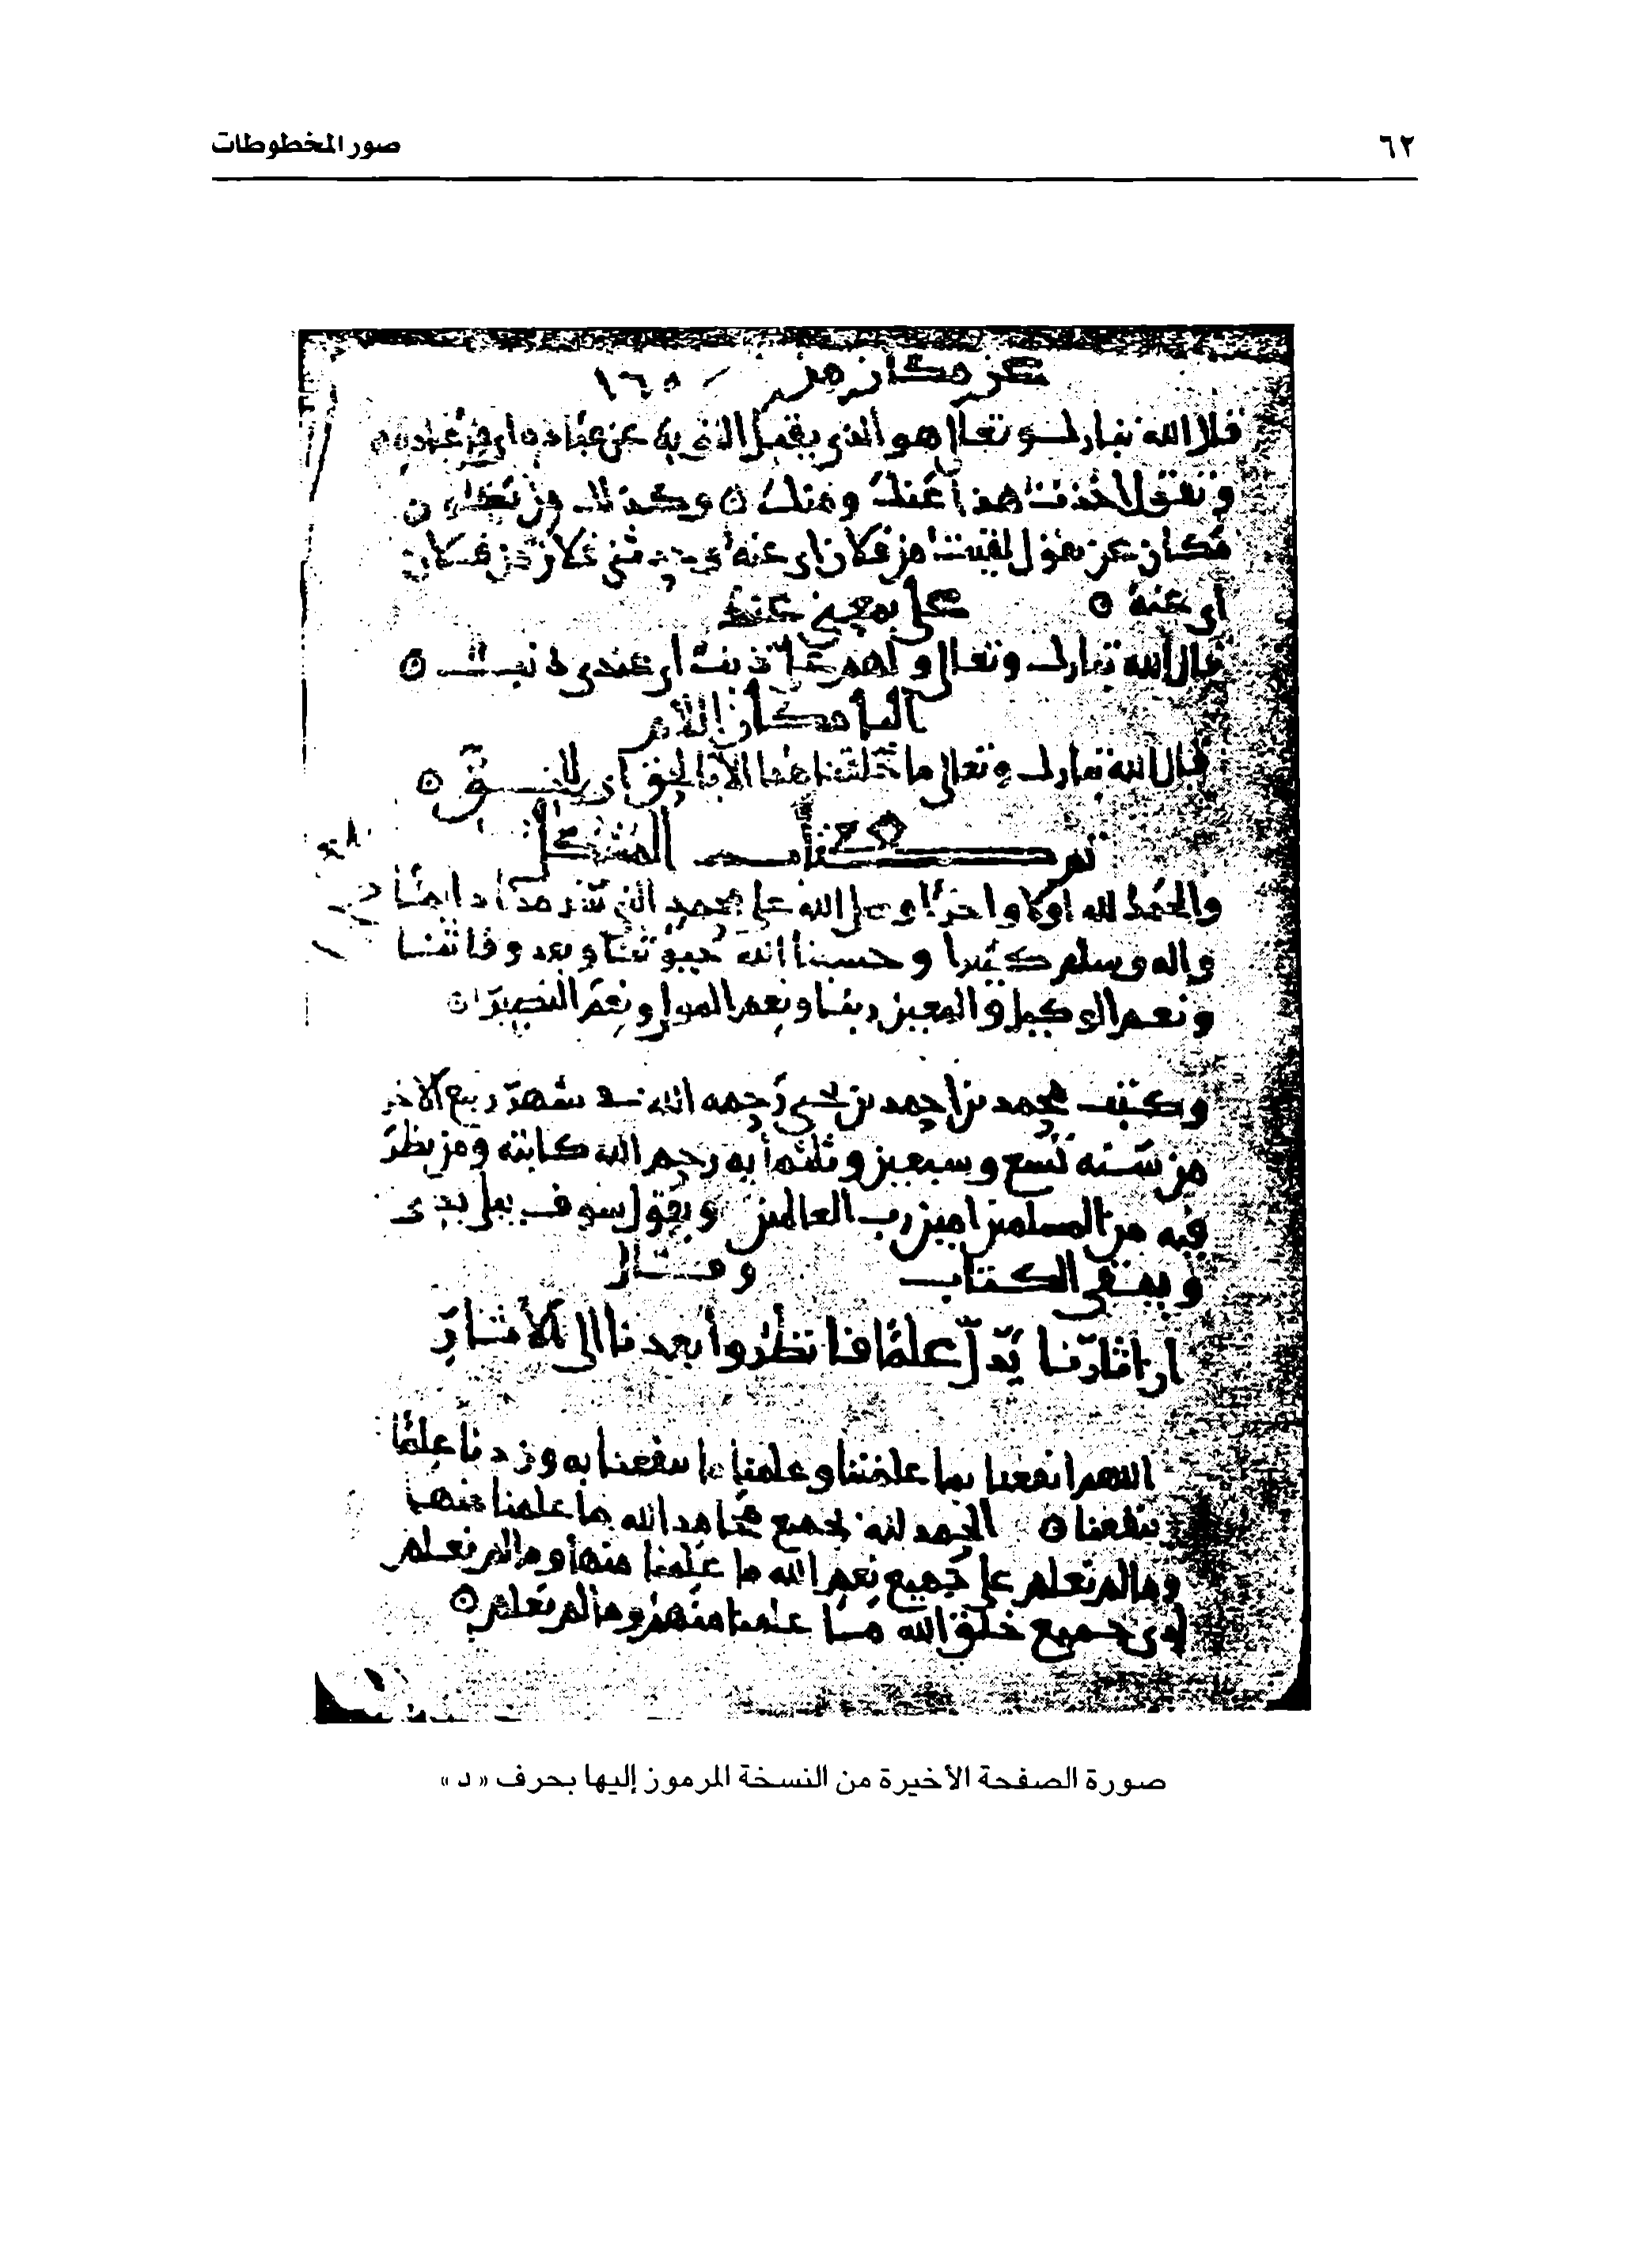 ٦٢
صور المخطوطات
عن مكان من ١٦٥
قال الله تبارك وتعالى هو الذي يقبل التوبة عن عباده أي من عباده
وتقول أخذت هذا عنك ومنك وكذلك من
مكان عن يقول لقيت من فلان أي عنه من فلان من فلان
أي عنه على بمعنى عند
قال الله تبارك وتعالى ولهم علي ذنب أي عندي ذنب
الباء مكان اللام
قال الله تبارك وتعالى ما خلقناهما الا بالحق أي للحق
تم كتاب المشكل
والحمد لله أولا وآخرا وصلى الله على محمد النبي
وآله وسلم كثيرا وحسبنا الله
ونعم الوكيل والمعين ربنا ونعم المولى ونعم النصير
وكتب محمد بن احمد بن يحيى رحمه الله في شهر ربيع الآخر
من سنة تسع وسبعين وثلثمأية رحم الله كاتبه ومن نظر
فيه من المسلمين امين رب العالمين ويقول سوف يبلى يدي
ويبقى الكتاب وقال
ان اثارنا تدل علينا فانظروا بعدنا الى الآثار
اللهم انفعنا بما علمتنا وعلمنا ما ينفعنا به وزدنا علما
تنفعنا الحمد لله بجميع محامد الله ما علمنا منها
وما لم نعلم على جميع نعم الله ما علمنا منها وما لم نعلم
جميع خلق الله ما علمنا منهم وما لم نعلم
صورة الصفحة الأخيرة من النسخة المرموز إليها بحرف « د »